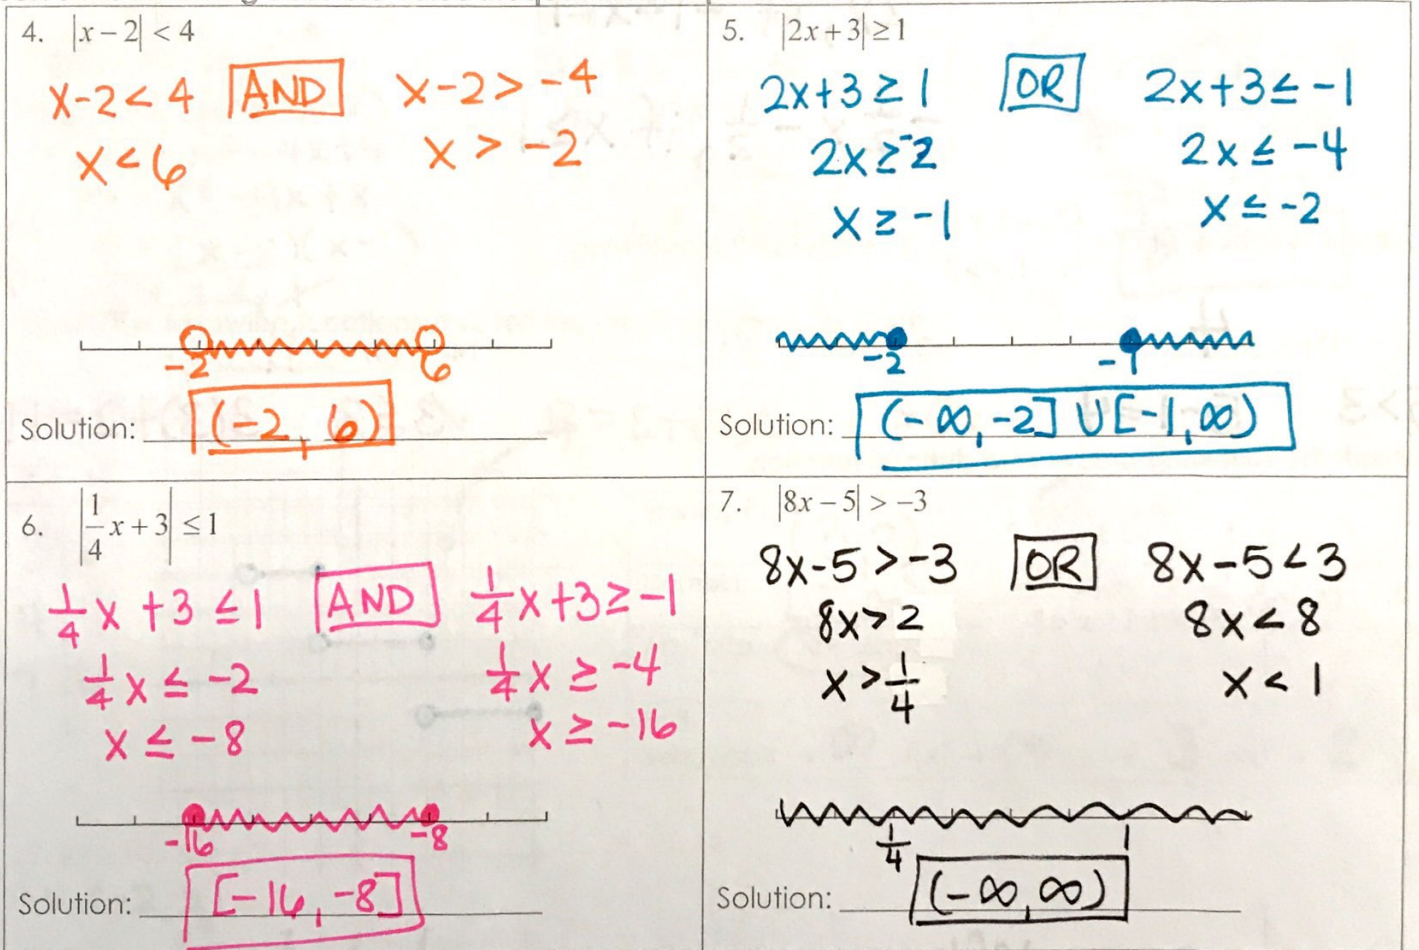 4. |x − 2| < 4
x-2 < 4 AND x-2 > -4
x < 6 x > -2
-2 6
Solution: (-2, 6)
5. |2x + 3| ≥ 1
2x+3 ≥ 1 OR 2x+3 ≤ -1
2x ≥ -2 2x ≤ -4
x ≥ -1 x ≤ -2
-2 -1
Solution: (-∞, -2] U [-1, ∞)
6. |1/4 x + 3| ≤ 1
1/4 x + 3 ≤ 1 AND 1/4 x + 3 ≥ -1
1/4 x ≤ -2 1/4 x ≥ -4
x ≤ -8 x ≥ -16
-16 -8
Solution: [-16, -8]
7. |8x − 5| > −3
8x-5 > -3 OR 8x-5 < 3
8x > 2 8x < 8
x > 1/4 x < 1
1/4 1
Solution: (-∞, ∞)